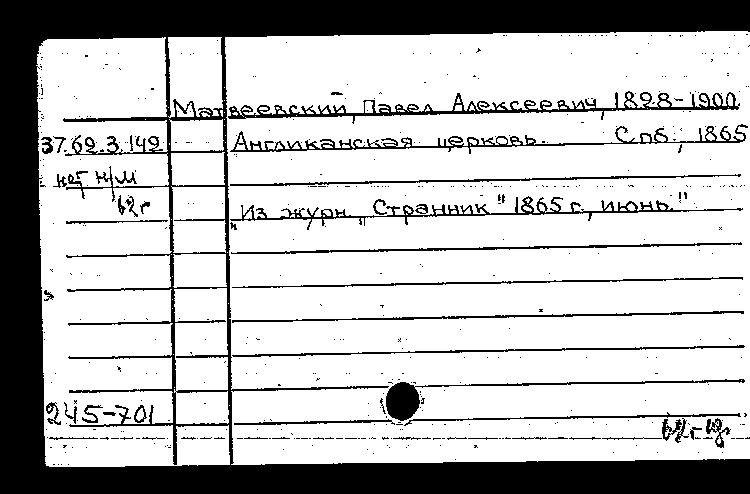 Матвеевский, Павел Алексеевич, 1828-1900
37.62.3.142 Англиканская церковь. Спб., 1865
нет н/м
62г
"Из журн. "Странник" 1865 г., июнь."
245-701